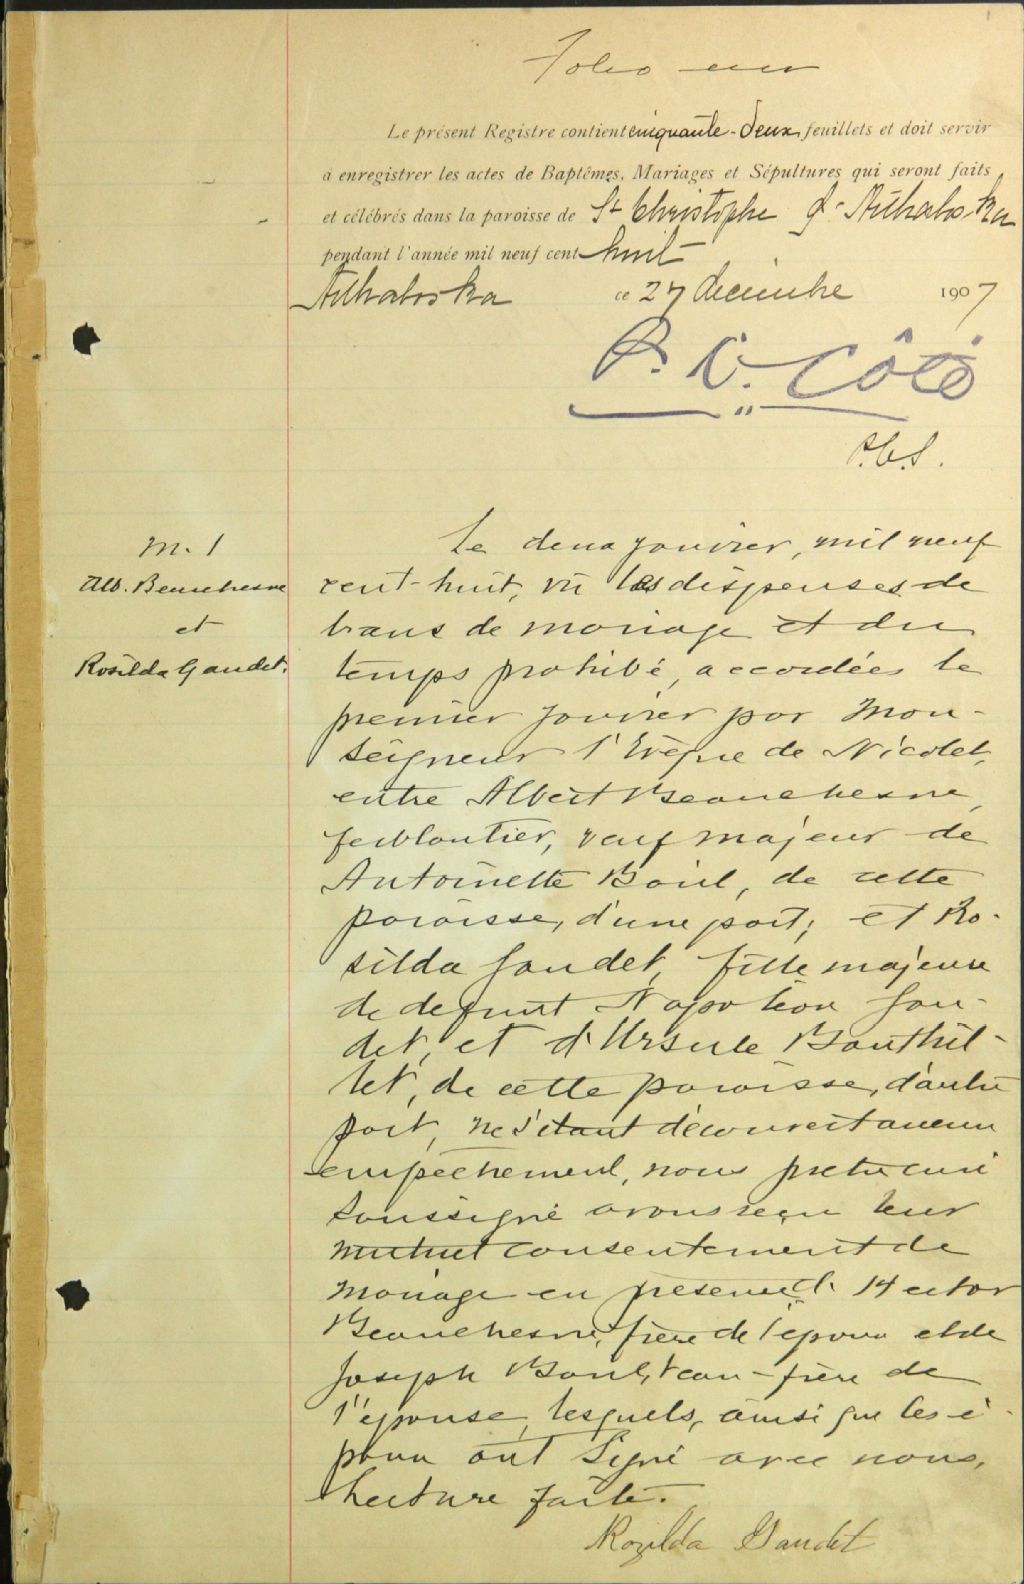 Folio un
Le présent Registre contient cinquante-deux feuillets et doit servir
à enregistrer les actes de Baptêmes, Mariages et Sépultures qui seront faits
et célébrés dans la paroisse de St Christophe d'Arthabaska
pendant l'année mil neuf cent huit
Arthabaska ce 27 decembre 1907
P. C. Côté
P.C.S.
M. 1
Alb. Beauchesne
et
Rosilda Gaudet.
Le deux janvier, mil neuf
cent-huit, vû les dispenses de
bans de mariage et du
temps prohibé, accordées le
premier janvier par Mon-
seigneur l'Evêque de Nicolet,
entre Albert Beauchesne,
ferblantier, veuf majeur de
Antoinette, de cette
paroisse, d'une part; et Ro-
silda Gaudet, fille majeure
de defunt Napoléon Gau-
det, et d'Ursule Bouthil-
let, de cette paroisse, d'autre
part, ne s'étant découvert aucun
empêchement, nous prêtre curé
soussigné avons reçu leur
mutuel consentement de
mariage en présence d' Hector
Beauchesne, frère de l'époux et de
Joseph beau-frère de
l'épouse, lesquels, ainsi que les é-
poux ont signé avec nous,
Lecture faite.
Rozilda Gaudet